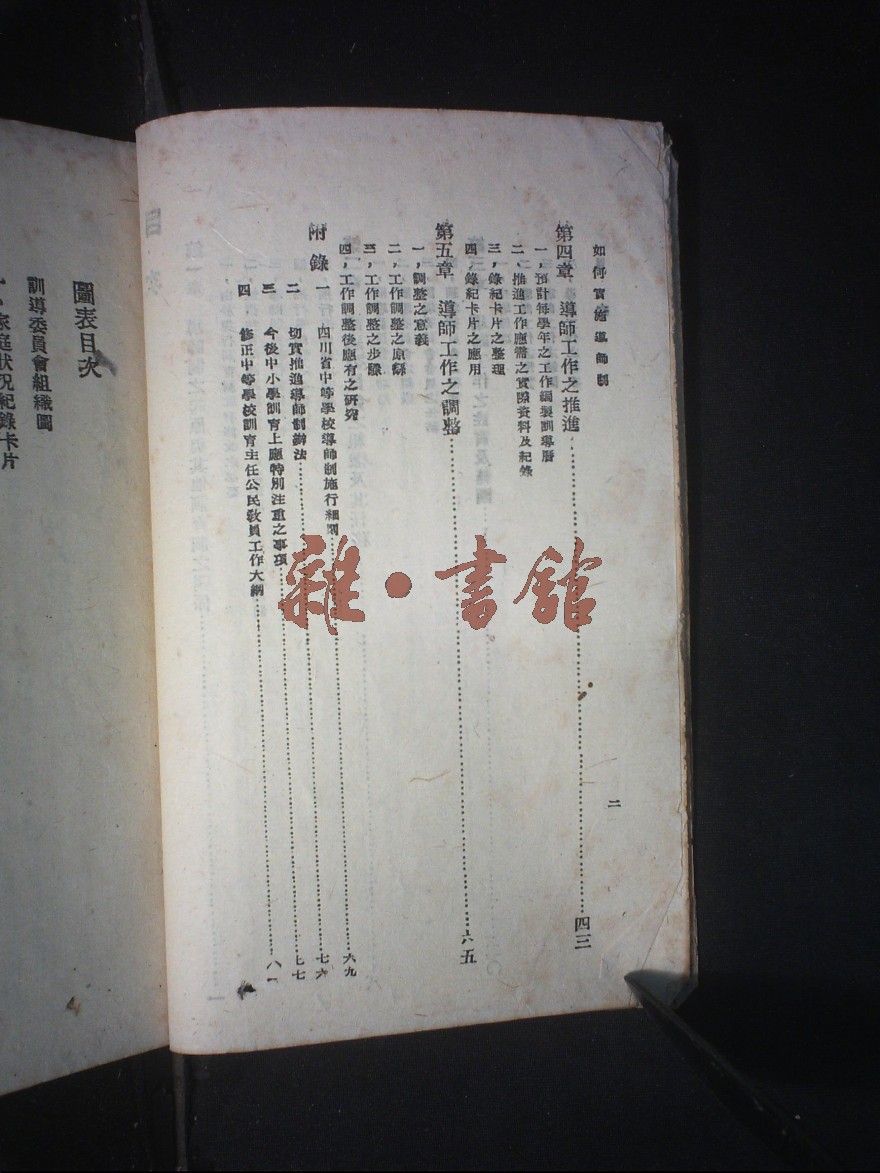 如何實施導師制
二
第四章　導師工作之推進……四三
一，預計每學年之工作編製訓導曆
二、推進工作應需之實際資料及紀錄
三，錄紀卡片之整理
四，錄紀卡片之應用
第五章　導師工作之調整……六五
一，調整之意義
二，工作調整之原緜
三，工作調整之步驟
四，工作調整後應有之研究
附錄一　四川省中等學校導師制施行細則……六九
二　切實推進導師制辦法……七六
三　今後中小學訓育上應特別注重之事項……七七
四　修正中等學校訓育主任公民敎員工作大綱……八一
圖表目次
訓導委員會組織圖
一，家庭狀況紀錄卡片
雜·書館